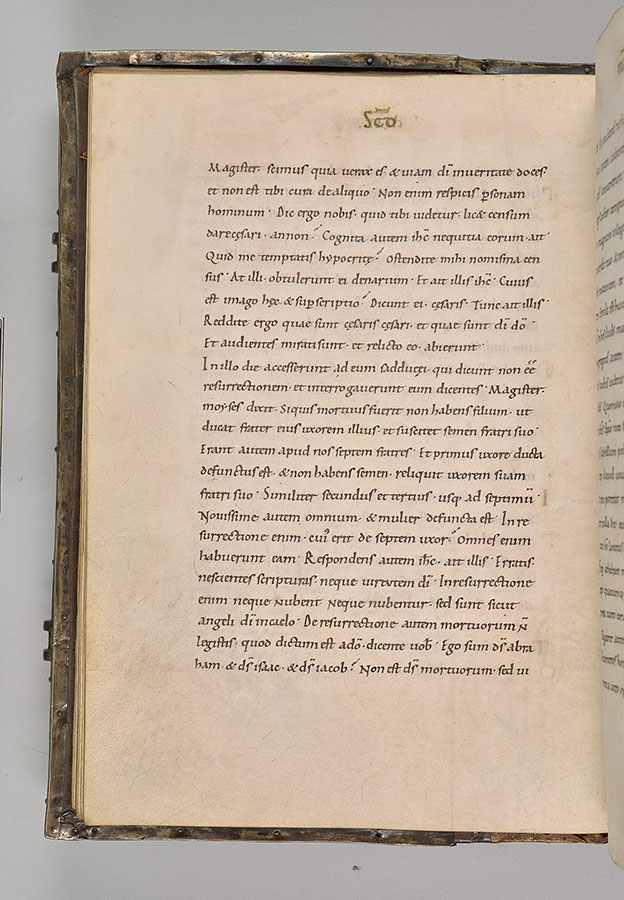 Scd̄
Magister· scimus quia verax es· & viam di̅ in veritate doces·
et non est tibi cura de aliquo· Non enim respicis p̱sonam
hominum· Dic ergo nobis· quid tibi videtur· lic& censum
dare cęsari· an non? Cognita autem ih̅c nequitia eorum· ait·
Quid me temptatis hypocritę? Ostendite mihi nomisma cen
sus· At illi· obtulerunt ei denarium· Et ait illis ih̅c· Cuius
est imago hęc & sup̱scriptio? Dicunt ei· cęsaris· Tunc ait illis·
Reddite ergo quae sunt cęsaris cęsari· et quae sunt di̅ do̅·
Et audientes mirati sunt· et relicto eo· abierunt·
In illo die accesserunt ad eum sadducęi· qui dicunt non ee̅
resurrectionem· et interrogaverunt eum dicentes· Magister·
moyses dixit· Si quis mortuus fuerit non habens filium· ut
ducat frater eius uxorem illius· et suscitet semen fratri suo·
Erant autem apud nos septem fratres· Et primus uxore ducta
defunctus est· & non habens semen· reliquit uxorem suam
fratri suo· Similiter secundus et tertius· usq; ad septimu̅·
Novissime autem omnium· & mulier defuncta est· In re
surrectione enim· cui' erit de septem uxor? Omnes enim
habuerunt eam· Respondens autem ih̅c· ait illis· Erratis·
nescientes scripturas neque virtutem di̅· In resurrectione
enim neque nubent neque nubentur· sed sunt sicut
angeli di̅ in caelo· De resurrectione autem mortuorum n̅
legistis· quod dictum est a do̅· dicente vob̅· Ego sum ds̅ abra
ham· & ds̅ isaac· & ds̅ iacob? Non est ds̅ mortuorum· sed vi